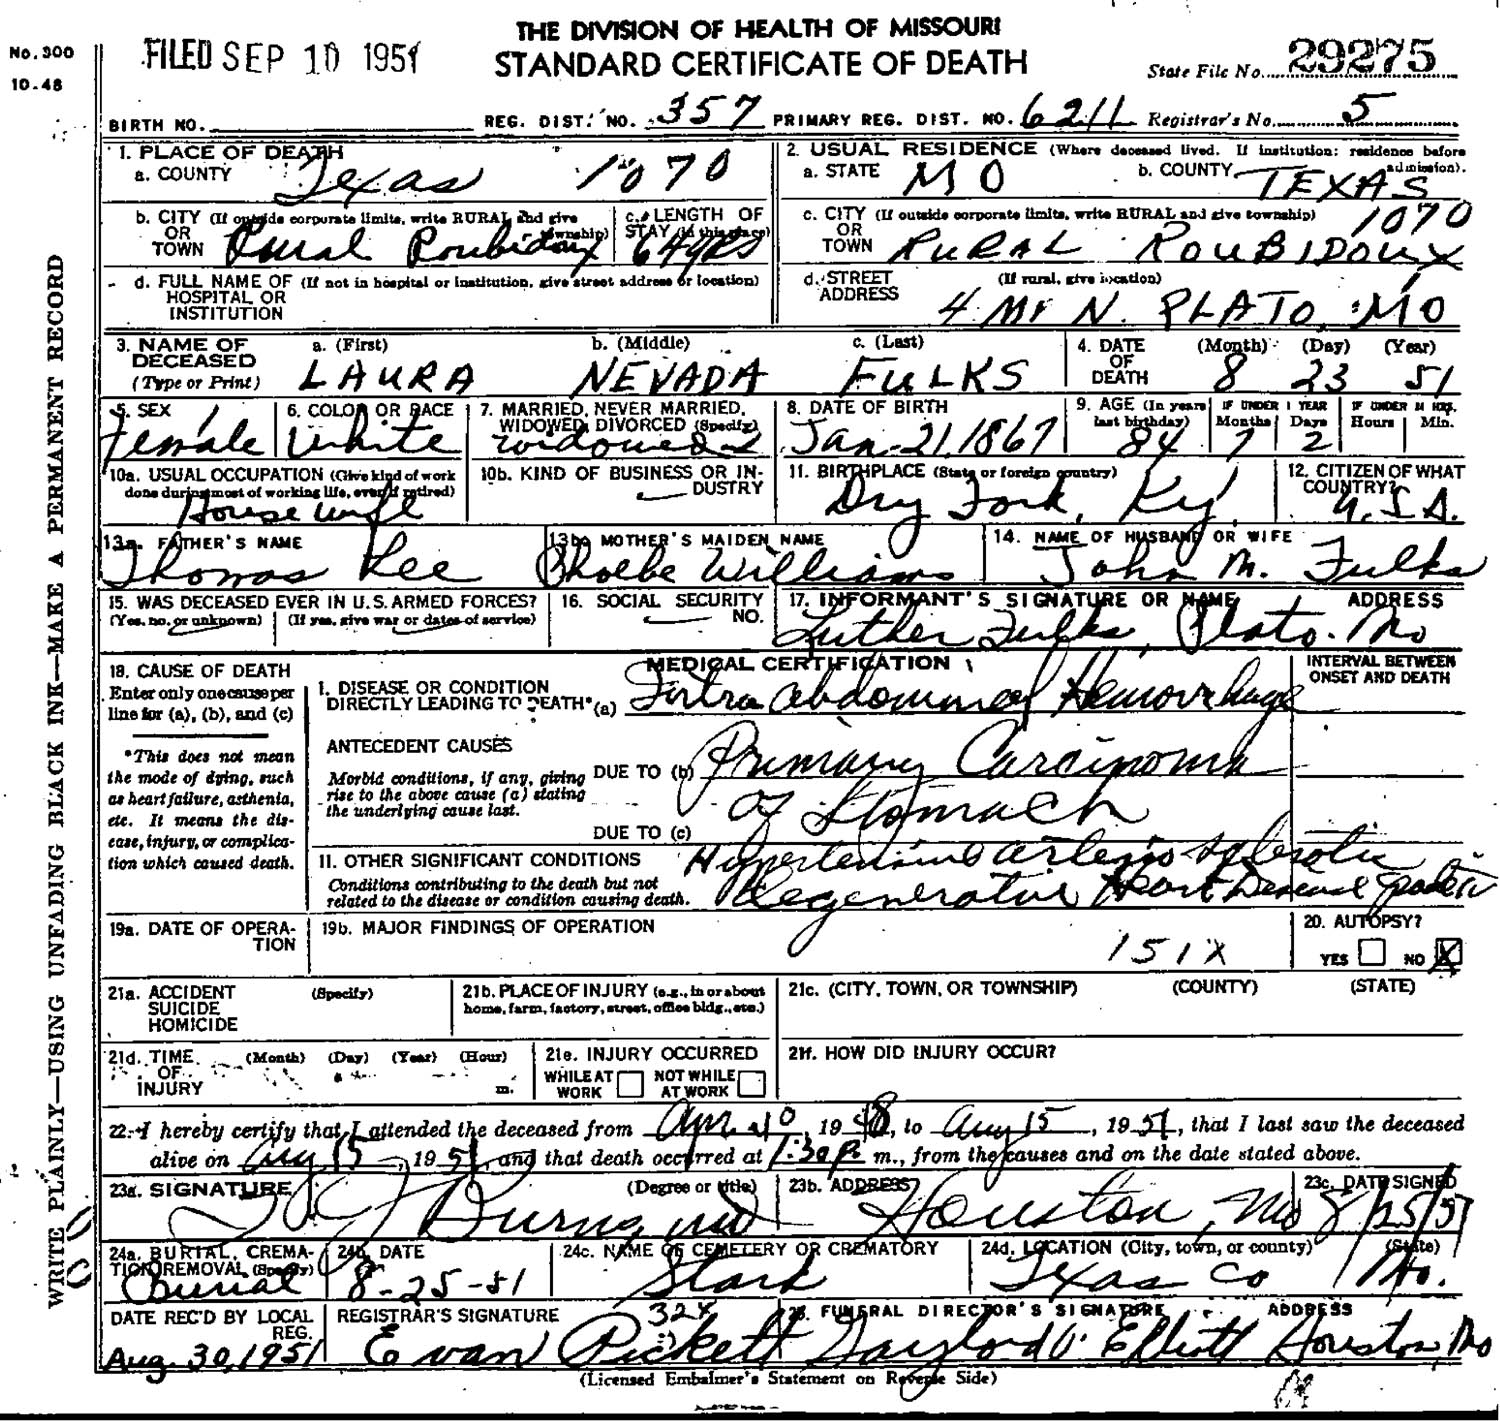 THE DIVISION OF HEALTH OF MISSOURI
STANDARD CERTIFICATE OF DEATH
No. 300
10-48
FILED SEP 10 1951
State File No. 29275
BIRTH NO. REG. DIST. NO. 357 PRIMARY REG. DIST. NO. 6211 Registrar's No. 5
1. PLACE OF DEATH
a. COUNTY Texas 1070
2. USUAL RESIDENCE (Where deceased lived. If institution: residence before admission).
a. STATE MO b. COUNTY TEXAS
b. CITY (If outside corporate limits, write RURAL and give township)
OR
TOWN Rural Roubidoux
c. LENGTH OF
STAY (in this place) 64 yrs
c. CITY (If outside corporate limits, write RURAL and give township) 1070
OR
TOWN RURAL ROUBIDOUX
d. FULL NAME OF (If not in hospital or institution, give street address or location)
HOSPITAL OR
INSTITUTION
d. STREET (If rural, give location)
ADDRESS 4 Mi N. PLATO, MO
3. NAME OF DECEASED
(Type or Print)
a. (First) LAURA
b. (Middle) NEVADA
c. (Last) FULKS
4. DATE OF DEATH (Month) (Day) (Year)
8 23 51
5. SEX Female
6. COLOR OR RACE White
7. MARRIED, NEVER MARRIED,
WIDOWED, DIVORCED (Specify)
widowed 2
8. DATE OF BIRTH
Jan-21,1867
9. AGE (In years last birthday) 84
IF UNDER 1 YEAR Months 7 Days 2
IF UNDER 24 HRS. Hours Min.
10a. USUAL OCCUPATION (Give kind of work
done during most of working life, even if retired)
House wife
10b. KIND OF BUSINESS OR INDUSTRY
11. BIRTHPLACE (State or foreign country)
Dry Fork, Ky.
12. CITIZEN OF WHAT COUNTRY?
U.S.A.
13a. FATHER'S NAME
Thomas Kee
13b. MOTHER'S MAIDEN NAME
Phoebe Williams
14. NAME OF HUSBAND OR WIFE
John M. Fulks
15. WAS DECEASED EVER IN U.S. ARMED FORCES?
(Yes, no, or unknown) (If yes, give war or dates of service)
16. SOCIAL SECURITY NO.
17. INFORMANT'S SIGNATURE OR NAME ADDRESS
Luther Fulks, Plato. Mo
18. CAUSE OF DEATH
Enter only one cause per
line for (a), (b), and (c)
*This does not mean
the mode of dying, such
as heart failure, asthenia,
etc. It means the dis-
ease, injury, or complica-
tion which caused death.
MEDICAL CERTIFICATION
INTERVAL BETWEEN
ONSET AND DEATH
I. DISEASE OR CONDITION
DIRECTLY LEADING TO DEATH* (a) Intra abdominal Hemorrhage
ANTECEDENT CAUSES
Morbid conditions, if any, giving
rise to the above cause (a) stating
the underlying cause last.
DUE TO (b) Primary Carcinoma
of Stomach
DUE TO (c)
II. OTHER SIGNIFICANT CONDITIONS
Conditions contributing to the death but not
related to the disease or condition causing death.
Hypertensive arteriosclerotic
degenerative Heart Disease
19a. DATE OF OPERATION
19b. MAJOR FINDINGS OF OPERATION
151X
20. AUTOPSY?
YES NO X
21a. ACCIDENT (Specify)
SUICIDE
HOMICIDE
21b. PLACE OF INJURY (e.g., in or about
home, farm, factory, street, office bldg., etc.)
21c. (CITY, TOWN, OR TOWNSHIP) (COUNTY) (STATE)
21d. TIME (Month) (Day) (Year) (Hour)
OF
INJURY m.
21e. INJURY OCCURRED
WHILE AT WORK NOT WHILE AT WORK
21f. HOW DID INJURY OCCUR?
22. I hereby certify that I attended the deceased from Apr. 10, 1948, to Aug 15, 1951, that I last saw the deceased
alive on Aug 15, 1951, and that death occurred at 1:30 p. m., from the causes and on the date stated above.
23a. SIGNATURE (Degree or title)
Burns MD
23b. ADDRESS
Houston, Mo
23c. DATE SIGNED
8/25/51
24a. BURIAL, CREMATION, REMOVAL (Specify)
Burial
24b. DATE
8-25-51
24c. NAME OF CEMETERY OR CREMATORY
Stark
24d. LOCATION (City, town, or county) (State)
Texas Co Mo.
DATE REC'D BY LOCAL REG.
Aug. 30, 1951
REGISTRAR'S SIGNATURE 324
Evan Pickett
25. FUNERAL DIRECTOR'S SIGNATURE ADDRESS
Gaylord V. Elliott Houston, Mo
(Licensed Embalmer's Statement on Reverse Side)
WRITE PLAINLY—USING UNFADING BLACK INK—MAKE A PERMANENT RECORD